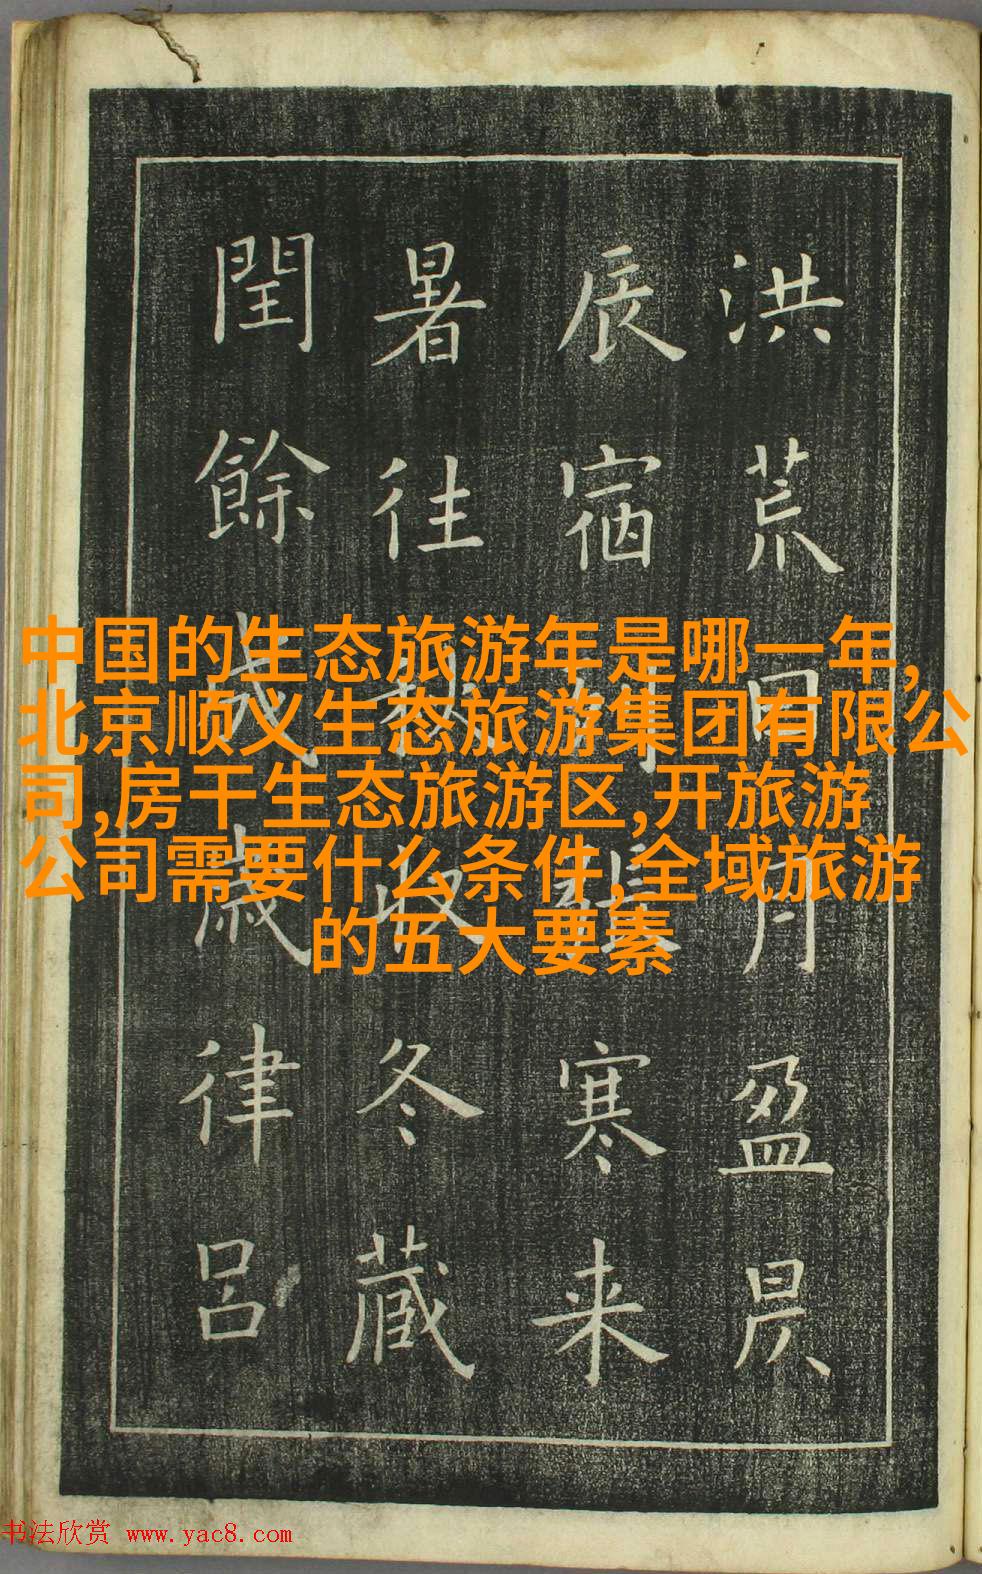 洪荒日月盈昃
辰宿列張寒来
暑往秋收冬蔵
閏餘成歲律吕
中国的生态旅游年是哪一年,
北京顺义生态旅游集团有限公
司,房干生态旅游区,开旅游
公司需要什么条件,全域旅游
的五大要素
书法欣赏 www.yac8.com